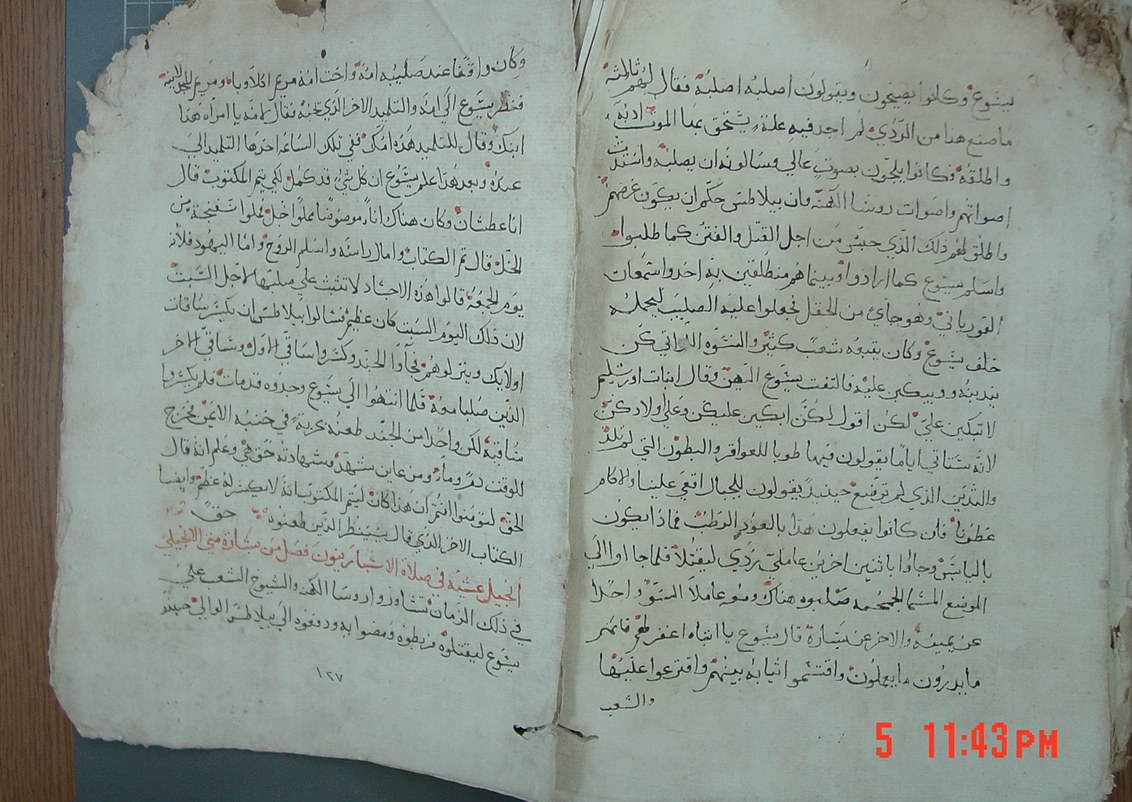 يشوع وكانوا يصيحون ويقولون اصلبه اصلبه فقال لهم ثالثة
ما صنع هذا من الردي لم اجد فيه علة تستحق بها الموت اادبه
واطلقه فكانوا يلحون بصوت عالي ويسالونه ان يصلبه واشتدت
اصواتهم واصوات روسا الكهنة وان بيلاطس حكم ان يكون غرضهم
واطلق لهم ذلك الذي حبس من اجل القتل والفتن كما طلبوا
واسلم يشوع كما ارادوا وبينما هم منطلقين به اخدوا شمعان
القورياني وهو جاي من الحقل فجعلوا عليه الصليب ليحمله
خلف يشوع وكان يتبعه شعب كثير والنسوه اللواتي كن
يندبنه ويبكين عليه فالتفت يشوع اليهن وقال ابنات اورشليم
لا تبكين علي لكن اقول لكن ابكين عليكن وعلي اولادكن
لانه ستاتي اياما يقولون فيها طوبا للعواقر والبطون التي لم تلد
والثديين الذي لم ترضع حينيذ يقولون للجبال اقعي علينا والاكام
غطونا فان كانوا يفعلون هذا بالعود الرطب فماذا يكون
باليابس وجاوا باثنين اخرين عاملي ردي ليقتلا فلما جاوا الي
الموضع المسما الجمجمه صلبوه هناك ومعه عاملا السو واحدا
عن يمينه والاخر عن يساره قال يشوع يا ابتاه اغفر لهم فانهم
ما يدرون ما يعملون واقتسموا ثيابه بينهم واقترعوا عليها
والشعب
وكان واقفا عند صليبه امه واخت امه مريم اكلاوبا ومريم المجدلانيه
فنظر يشوع الي امه والتلميد الاخر الذي يحبه فقال لامه يا امراه هذا
ابنك وقال للتلميد هذه امك ففي تلك الساعه اخدها التلميد الي
عنده وبعد هذا علم يشوع ان كل شي قد كمل لكي يتم المكتوب قال
انا عطشان وكان هناك اناء موضوعا مملوا خل فملوا سفنجة من
الخل قال تم الكتاب وامال راسه واسلم الروح واما اليهود فلان
يوم الجمعة قالوا هذه الاجساد لا تثبت علي صلبها لاجل السبت
لان ذلك اليوم السبت كان عظيم فسالوا بيلاطس ان يكسر ساقات
اولايك وينزلوهم فجاوا الجند وكسروا ساقي الاول وساقي الاخر
الذين صلبا معه فلما انتهوا الي يشوع وجدوه قد مات فلم يكسروا
ساقيه لكن واحدا من الجند طعنه بحربة في جنبه الايمن فخرج
للوقت دم وماء ومن عاين شهد وشهادته حق هي وعلم انه قال
الحق لتومنوا انتم ان هذا كان ليتم المكتوب انه لا يكسر له عظم وايضا
الكتاب الاخر الذي قال سينظر الذين طعنوه حق
انجيل عشيه في صلاة الاسبارينون فصل من بشارة متي الانجيلي
في ذلك الزمان تشاوروا روسا الكهنه والشيوخ الشعب علي
يشوع ليقتلوه فربطوه ومضوا به ودفعوه الي بيلاطس الوالي حينيذ
١٢٧
5 11:43 PM